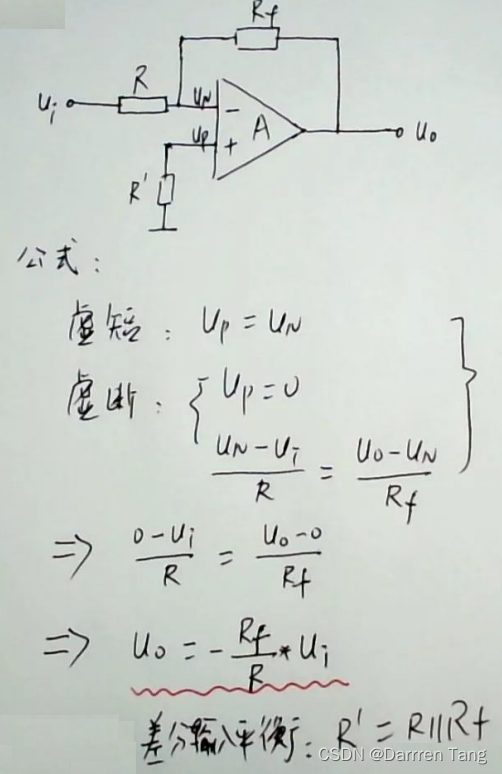 Rf
R
Ui
UN
-
A
Uo
UP
+
R'
公式：
虚短：UP = UN
虚断：{ UP = 0
(UN - Ui)/R = (Uo - UN)/Rf }
=> (0 - Ui)/R = (Uo - 0)/Rf
=> Uo = - Rf/R * Ui
差分输入平衡：R' = R||Rf
CSDN @Darrren Tang